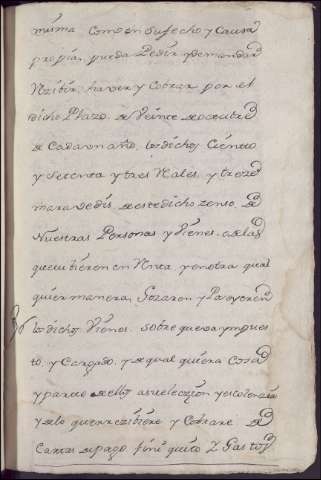 misma como en su fecho y Causa
propia, pueda Pedir y demandar
Rezibir, haver y Cobrar por el
dicho Plazo, de Veinte de octubre
de Cada un año, los dichos Ciento
y Setenta y tres Reales, y treze
maravedis, de este dicho Zenso, de
Nuestras Personas y Vienes, o de las
que tubieren en Renta, y en otra qual
quier manera, Gozaren y Poseyeren
los dichos Vienes, sobre que va ympues
to, y Cargado, y de qual quiera Cosa
y parte de ellos a su eleczion y escoxenzia
y de lo que rezibiere y Cobrare de
Cartas de pago, finiquito Y Gasto